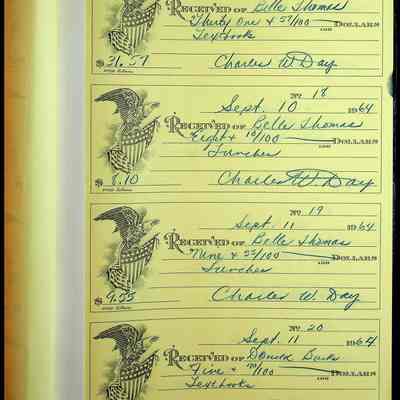 RECEIVED OF Belle Thomas
Thirty One & 57/100 DOLLARS
Textbooks FOR
$ 31.57 Charles W. Day
No 18
Sept. 10 1964
RECEIVED OF Belle Thomas
Eight & 10/100 DOLLARS
Lunches FOR
$ 8.10 Charles W. Day
No. 19
Sept. 11 1964
RECEIVED OF Belle Thomas
Nine & 55/100 DOLLARS
Lunches FOR
$ 9.55 Charles W. Day
No. 20
Sept. 11 1964
RECEIVED OF Donald
Five & /100 DOLLARS
Textbooks FOR